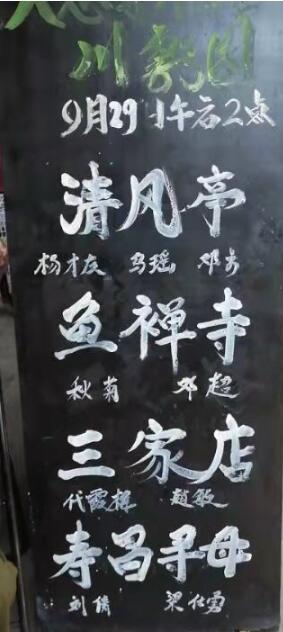 川剧团
9月29日午后2点
清风亭
马瑶 邓
鱼禅寺
秋菊 邓超
三家店
代霞辉 赵敏
寿昌寻母
刘倩 梁仕勇